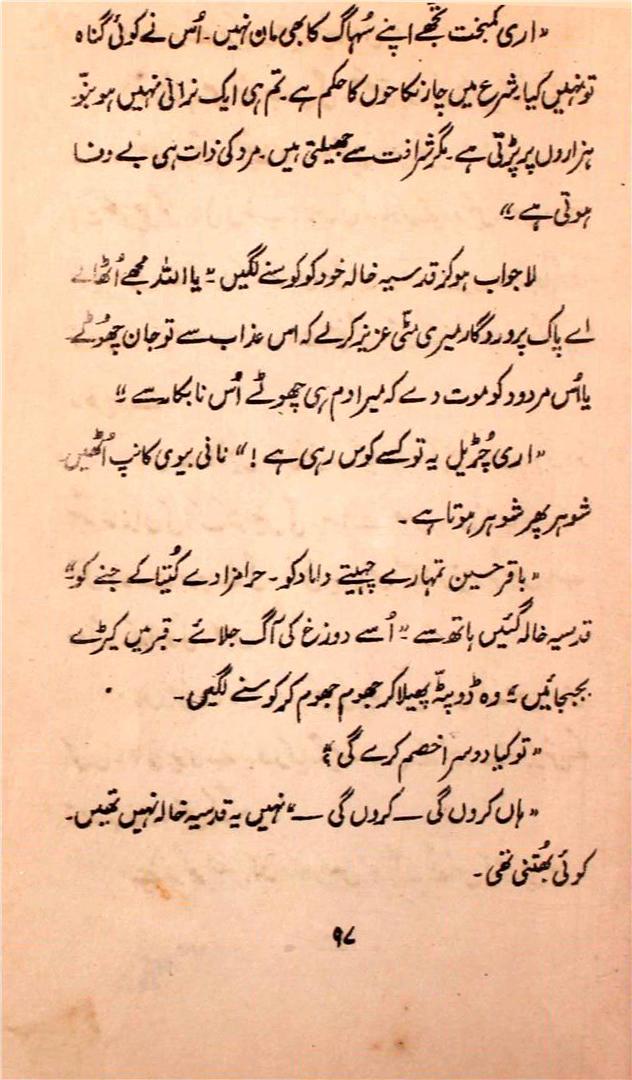 "اری کمبخت تجھے اپنے سُہاگ کا بھی مان نہیں۔ اُس نے کوئی گناہ
تو نہیں کیا۔ شرع میں چار نکاحوں کا حکم ہے۔ تم ہی ایک نرالی نہیں ہو بنّو۔
ہزاروں پر پڑتی ہے۔ مگر شرافت سے جھیلتی ہیں۔ مرد کی ذات ہی بے وفا
ہوتی ہے۔"
لاجواب ہو کر قدسیہ خالہ خود کو کوسنے لگیں۔ "یا اللہ مجھے اُٹھالے
اے پاک پروردگار میری مٹی عزیز کرلے کہ اس عذاب سے تو جان چھُوٹے۔
یا اُس مردود کو موت دے کہ میرا دم ہی چھوٹے اُس نابکار سے۔"
"اری چُڑیل یہ تو کسے کوس رہی ہے!" نانی بیوی کانپ اُٹھیں۔
شوہر پھر شوہر ہوتا ہے۔
"باقر حسین تمہارے چہیتے داماد کو۔ حرامزادے کُتیا کے جنے کو"
قدسیہ خالہ گئیں ہاتھ سے "اُسے دوزخ کی آگ جلائے۔ قبر میں کیڑے
بجبجائیں" وہ ڈوپٹہ پھیلا کر جھوم جھوم کر کوسنے لگیں۔
"تو کیا دوسرا خصم کرے گی؟"
"ہاں کروں گی — کروں گی —" نہیں یہ قدسیہ خالہ نہیں تھیں۔
کوئی بھُتنی تھی۔
۹۷